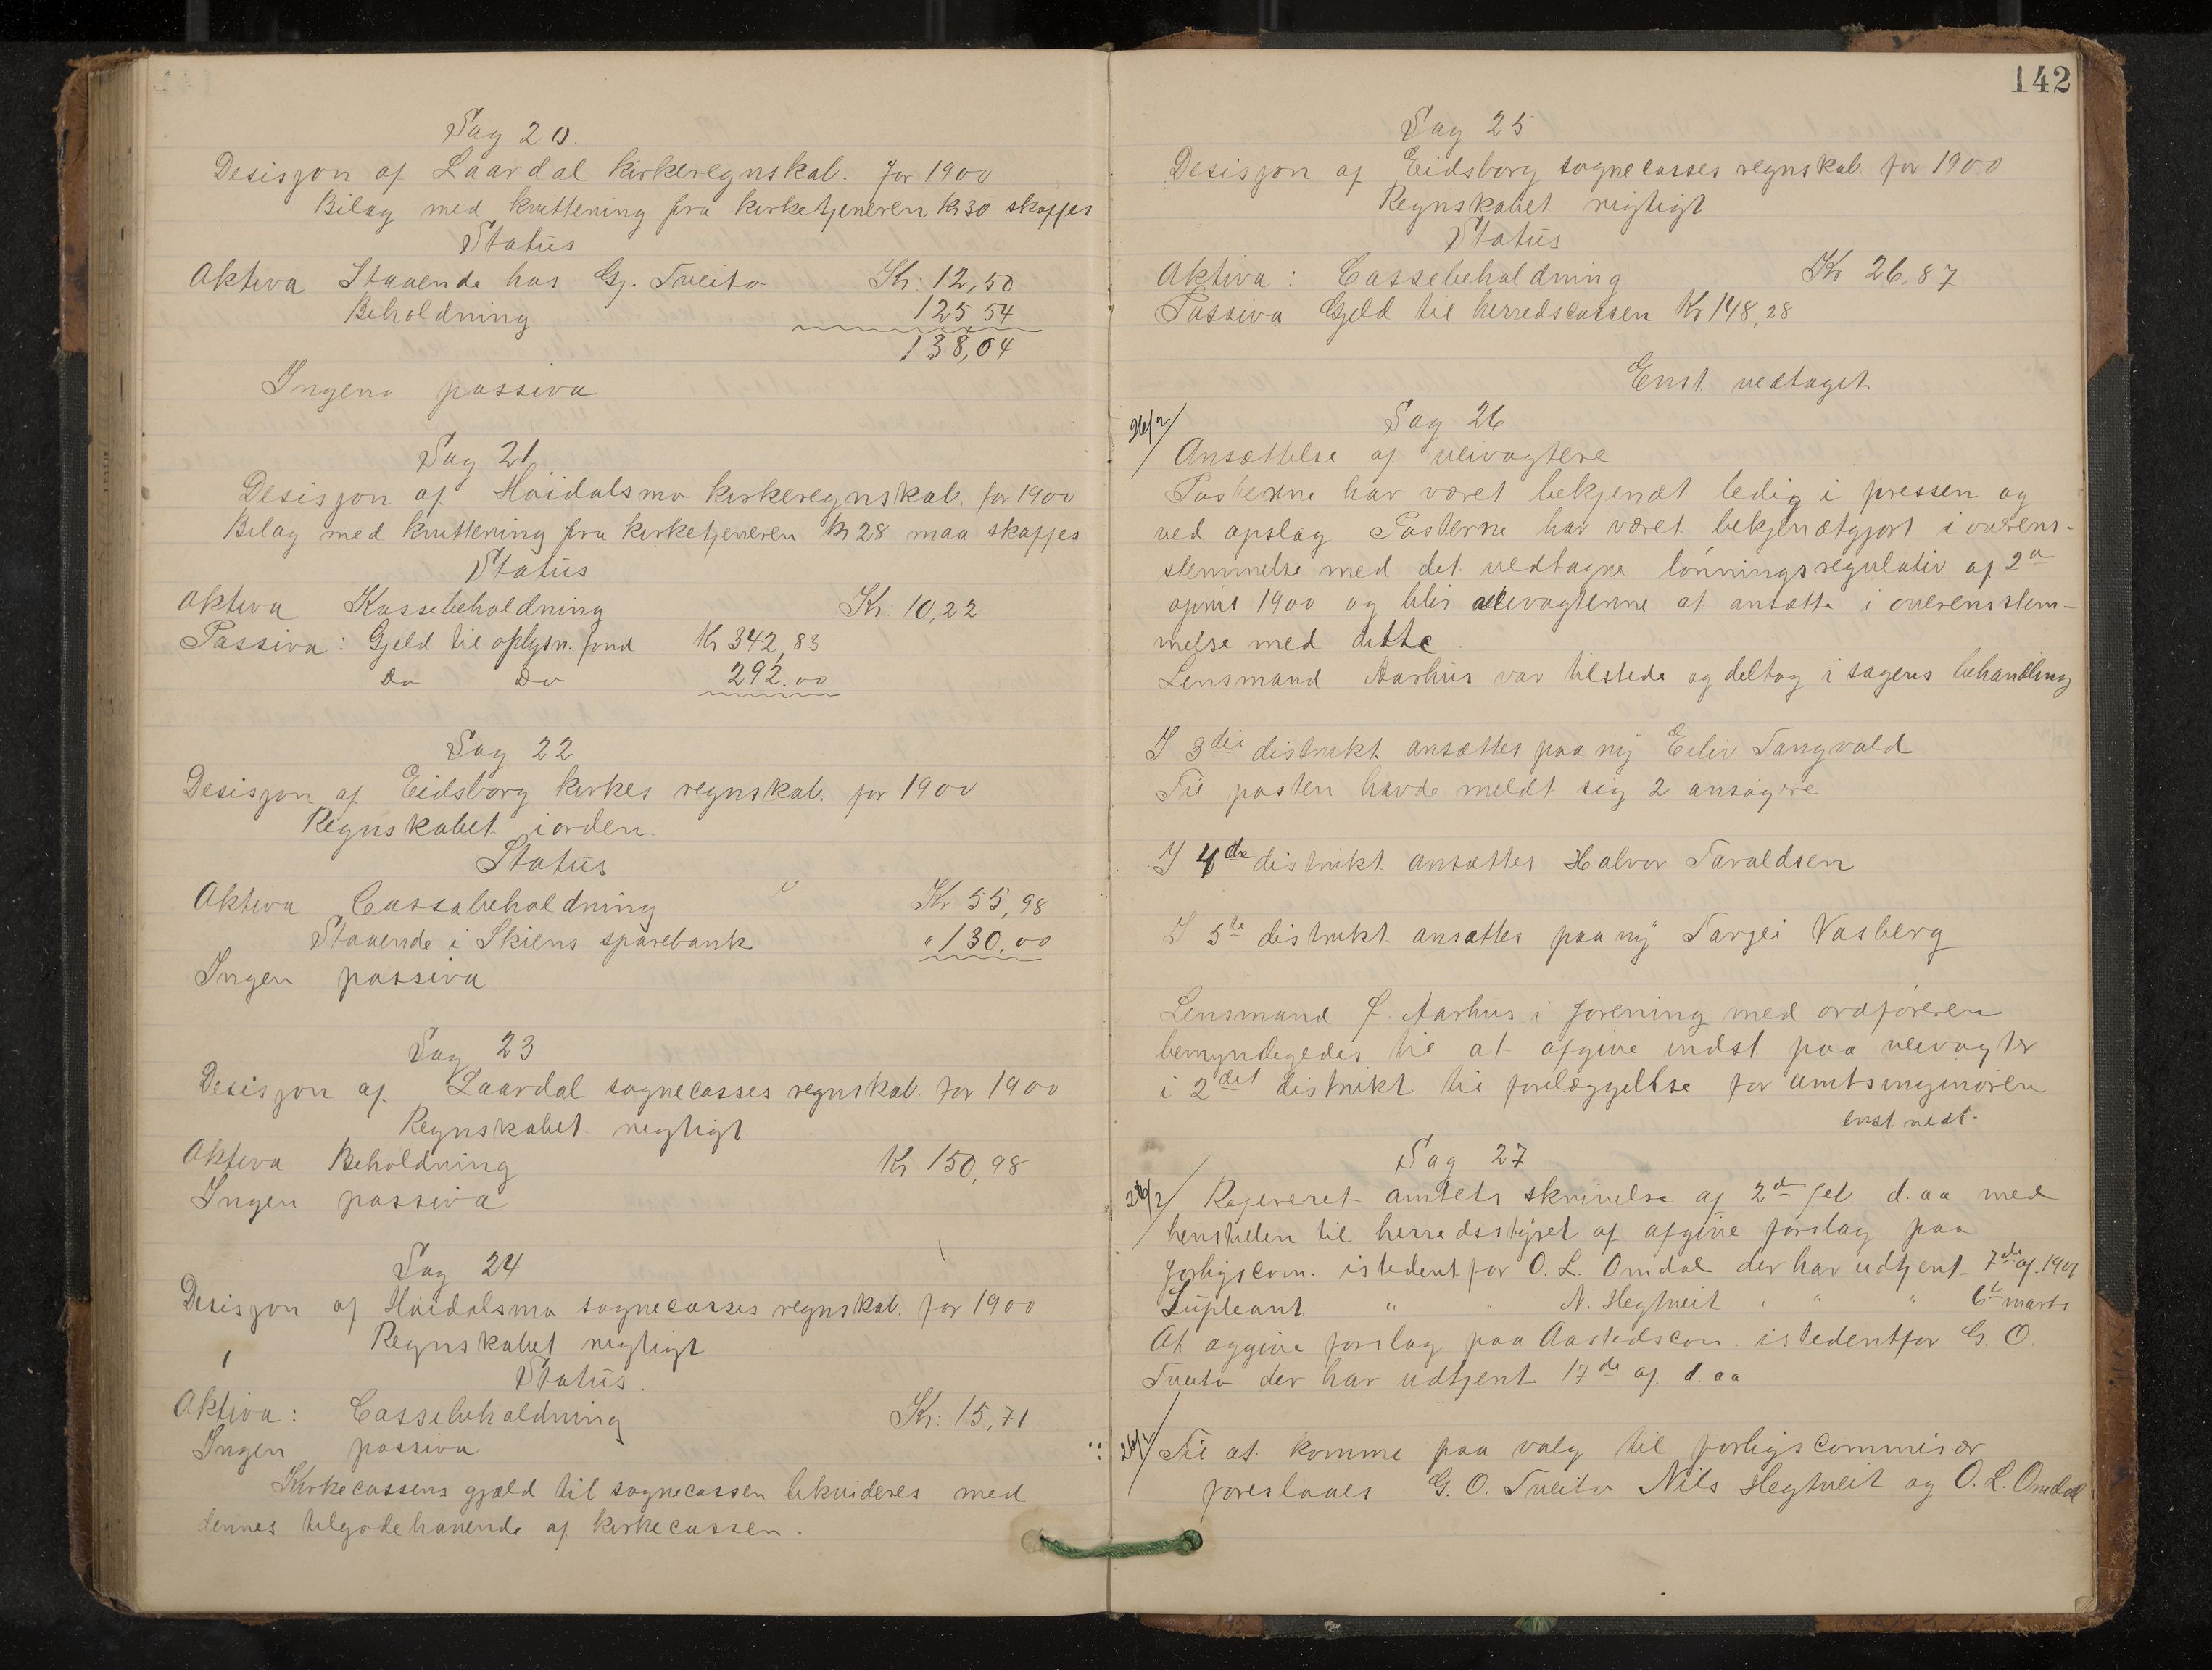 Sag 20.
Desisjon af Laardal kirkeregnskab. for 1900
Bilag med kvittering fra kirketjeneren Kr 30 skaffes
Status
Aktiva Staaende hos Gj. Tveito Kr: 12,50
Beholdning 125 54
138,04
Ingen passiva
Sag 21
Desisjon af Høidalsmo kirkeregnskab. for 1900
Bilag med kvittering fra kirketjeneren Kr 28 maa skaffes
Status
Aktiva Kassebeholdning Kr: 10,22
Passiva: Gjeld til oplysn. fond Kr 342,83
Do Do 292.00
Sag 22
Desisjon af Eidsborg kirkes regnskab. for 1900
Regnskabet iorden
Status
Aktiva Cassabeholdning Kr 55,98
Staaende i Skiens sparebank " 130,00
Ingen passiva
Sag 23
Desisjon af Laardal sognecasses regnskab. for 1900
Regnskabet rigtigt
Aktiva Beholdning Kr 150,98
Ingen passiva
Sag 24
Desisjon af Høidalsmo sognecasses regnskab. for 1900
Regnskabet rigtigt
Status.
Aktiva: Cassebeholdning Kr: 15,71
Ingen passiva
Kirkecassens gjæld til sognecassen likvideres med
dennes tilgodehavende af kirkecassen.
142
Sag 25
Desisjon af Eidsborg sognecasses regnskab. for 1900
Regnskabet rigtigt
Status
Aktiva: Cassebeholdning Kr 26,87
Passiva Gjeld til herredscassen Kr 148,28
Enst. vedtaget
26/2 Sag 26
Ansættelse af veivogtere
Posterne har været bekjendt ledig i pressen og
ved opslag Posterne har været bekjendtgjort i overens-
stemmelse med det vedtagne lønningsregulativ af 2den
april 1900 og blir veivogterne at ansætte i overensstem-
melse med dette.
Lensmand Aarhus var tilstede og deltog i sagens behandling
I 3die distrikt ansættes paa ny Eiliv Tangvald
Til posten havde meldt sig 2 ansøgere
I 4de distrikt ansættes Halvor Taraldsen
I 5te distrikt ansættes paa ny Tarjei Vasberg
Lensmand J. Aarhus i forening med ordføreren
bemyndigedes til at afgive indst. paa veivogter
i 2det distrikt til forelæggelse for amtsingeniøren
enst. vedt.
Sag 27
26/2 Refereret amtets skrivelse af 2den feb. d. aa med
henstillen til herredsstyret af afgive forslag paa
forligscom. istedent for O. L. Omdal der har udtjent 7de ap. 1901
Supleant " " N. Hegtveit " " " 6te marts
At aggive forslag paa Aastedscom. istedentfor G. O.
Tveito der har udtjent 17de ap. d. aa
26/2 Til at komme paa valg til forligscommisær
foreslaaes G. O. Tveito Nils Hegtveit og O. L. Omdal